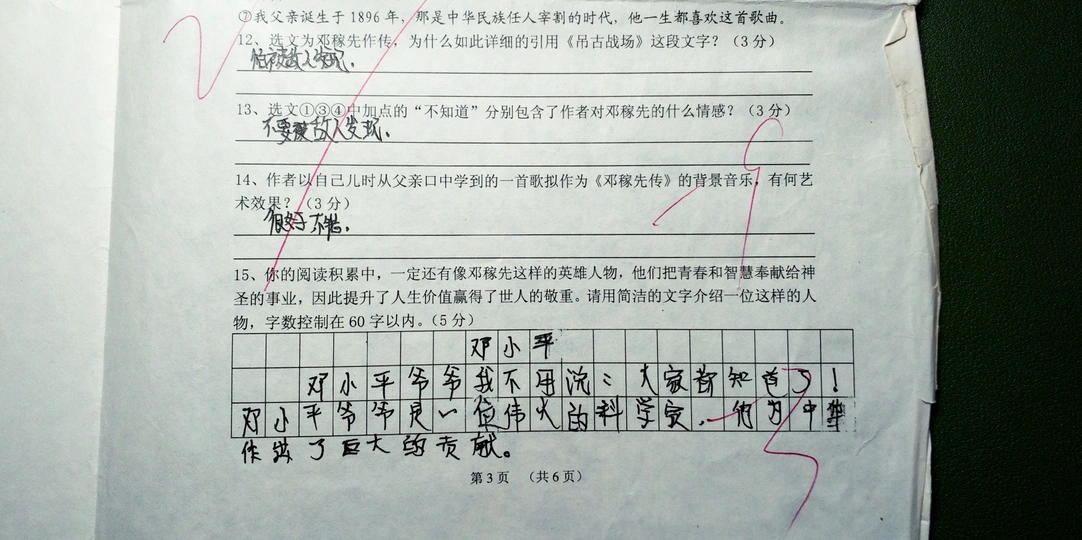 ⑦我父亲诞生于 1896 年，那是中华民族任人宰割的时代，他一生都喜欢这首歌曲。
12、选文为邓稼先作传，为什么如此详细的引用《吊古战场》这段文字？（3 分）
怕被敌人发现．
13、选文①③④中加点的“不知道”分别包含了作者对邓稼先的什么情感？（3 分）
不要被敌人发现．
14、作者以自己儿时从父亲口中学到的一首歌拟作为《邓稼先传》的背景音乐，有何艺
术效果？（3 分）
很好 不错．
15、你的阅读积累中，一定还有像邓稼先这样的英雄人物，他们把青春和智慧奉献给神
圣的事业，因此提升了人生价值赢得了世人的敬重。请用简洁的文字介绍一位这样的人
物，字数控制在 60 字以内。（5 分）
邓小平
邓小平爷爷我不用说：大家都知道了！
邓小平爷爷是一位伟大的科学家．他为中华
作出了巨大的贡献。
第 3 页 （共 6 页）